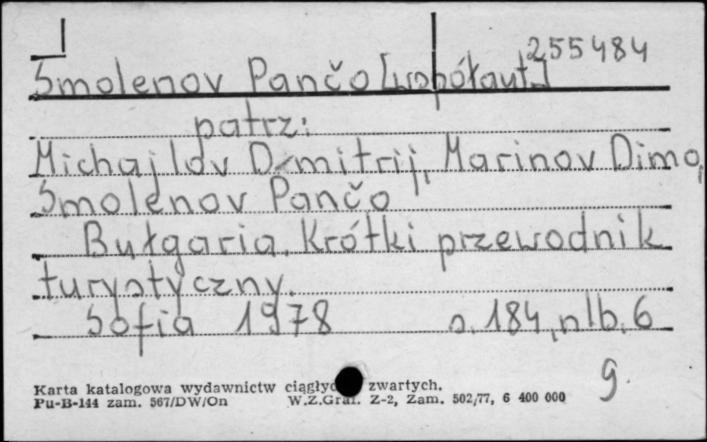 255484
Smolenov Pančo [współaut.]
patrz:
Michajlov Dimitrij, Marinov Dimo,
Smolenov Pančo
Bułgaria. Krótki przewodnik
turystyczny.
Sofia 1978 s. 184, nlb. 6
g.
Karta katalogowa wydawnictw zwartych.
Pu-B-144 zam. 567/DW/On W.Z.Graf. Z-2, Zam. 502/77, 6 400 000